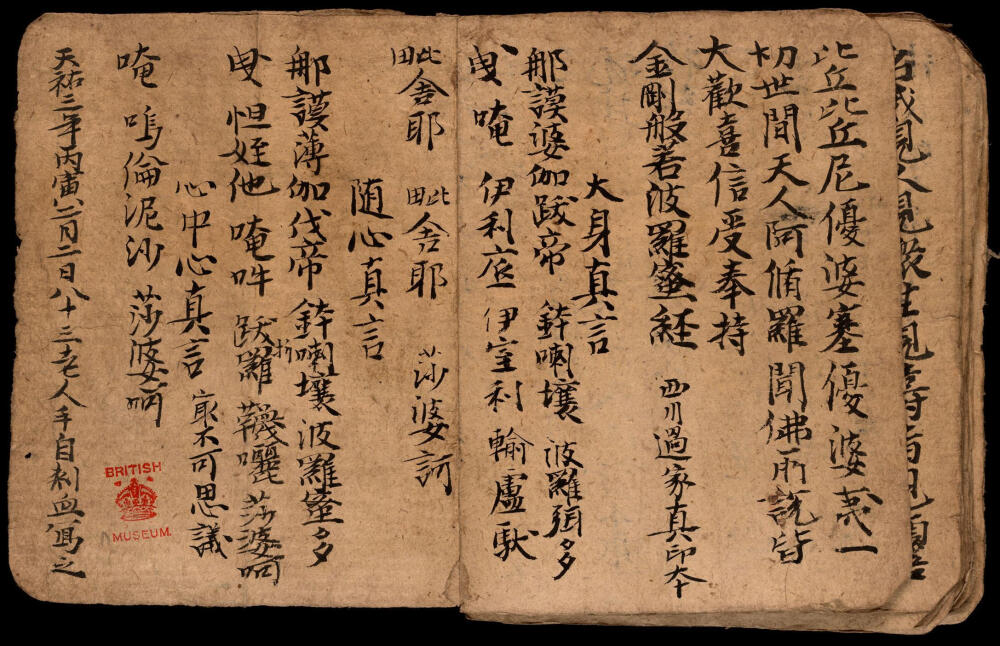 比丘比丘尼優婆塞優婆夷一
切世間天人阿脩羅聞佛所說皆
大歡喜信受奉持
金剛般若波羅蜜経 西川過家真印本
大身真言
那謨婆伽跋帝 鉢喇壤 波羅弭多
曳 唵 伊利底 伊室利 輸盧馱
毗舍耶 毗舍耶 莎婆訶
随心真言
那謨薄伽伐帝 鉢喇壤波羅蜜多
曳 怛姪他 唵 吽 跋折羅 囇 莎婆呵
心中心真言 冣不可思議
唵 嗚倫泥沙 莎婆呵
天祐三年丙寅二月二日八十三老人手自刺血寫之
BRITISH
MUSEUM.